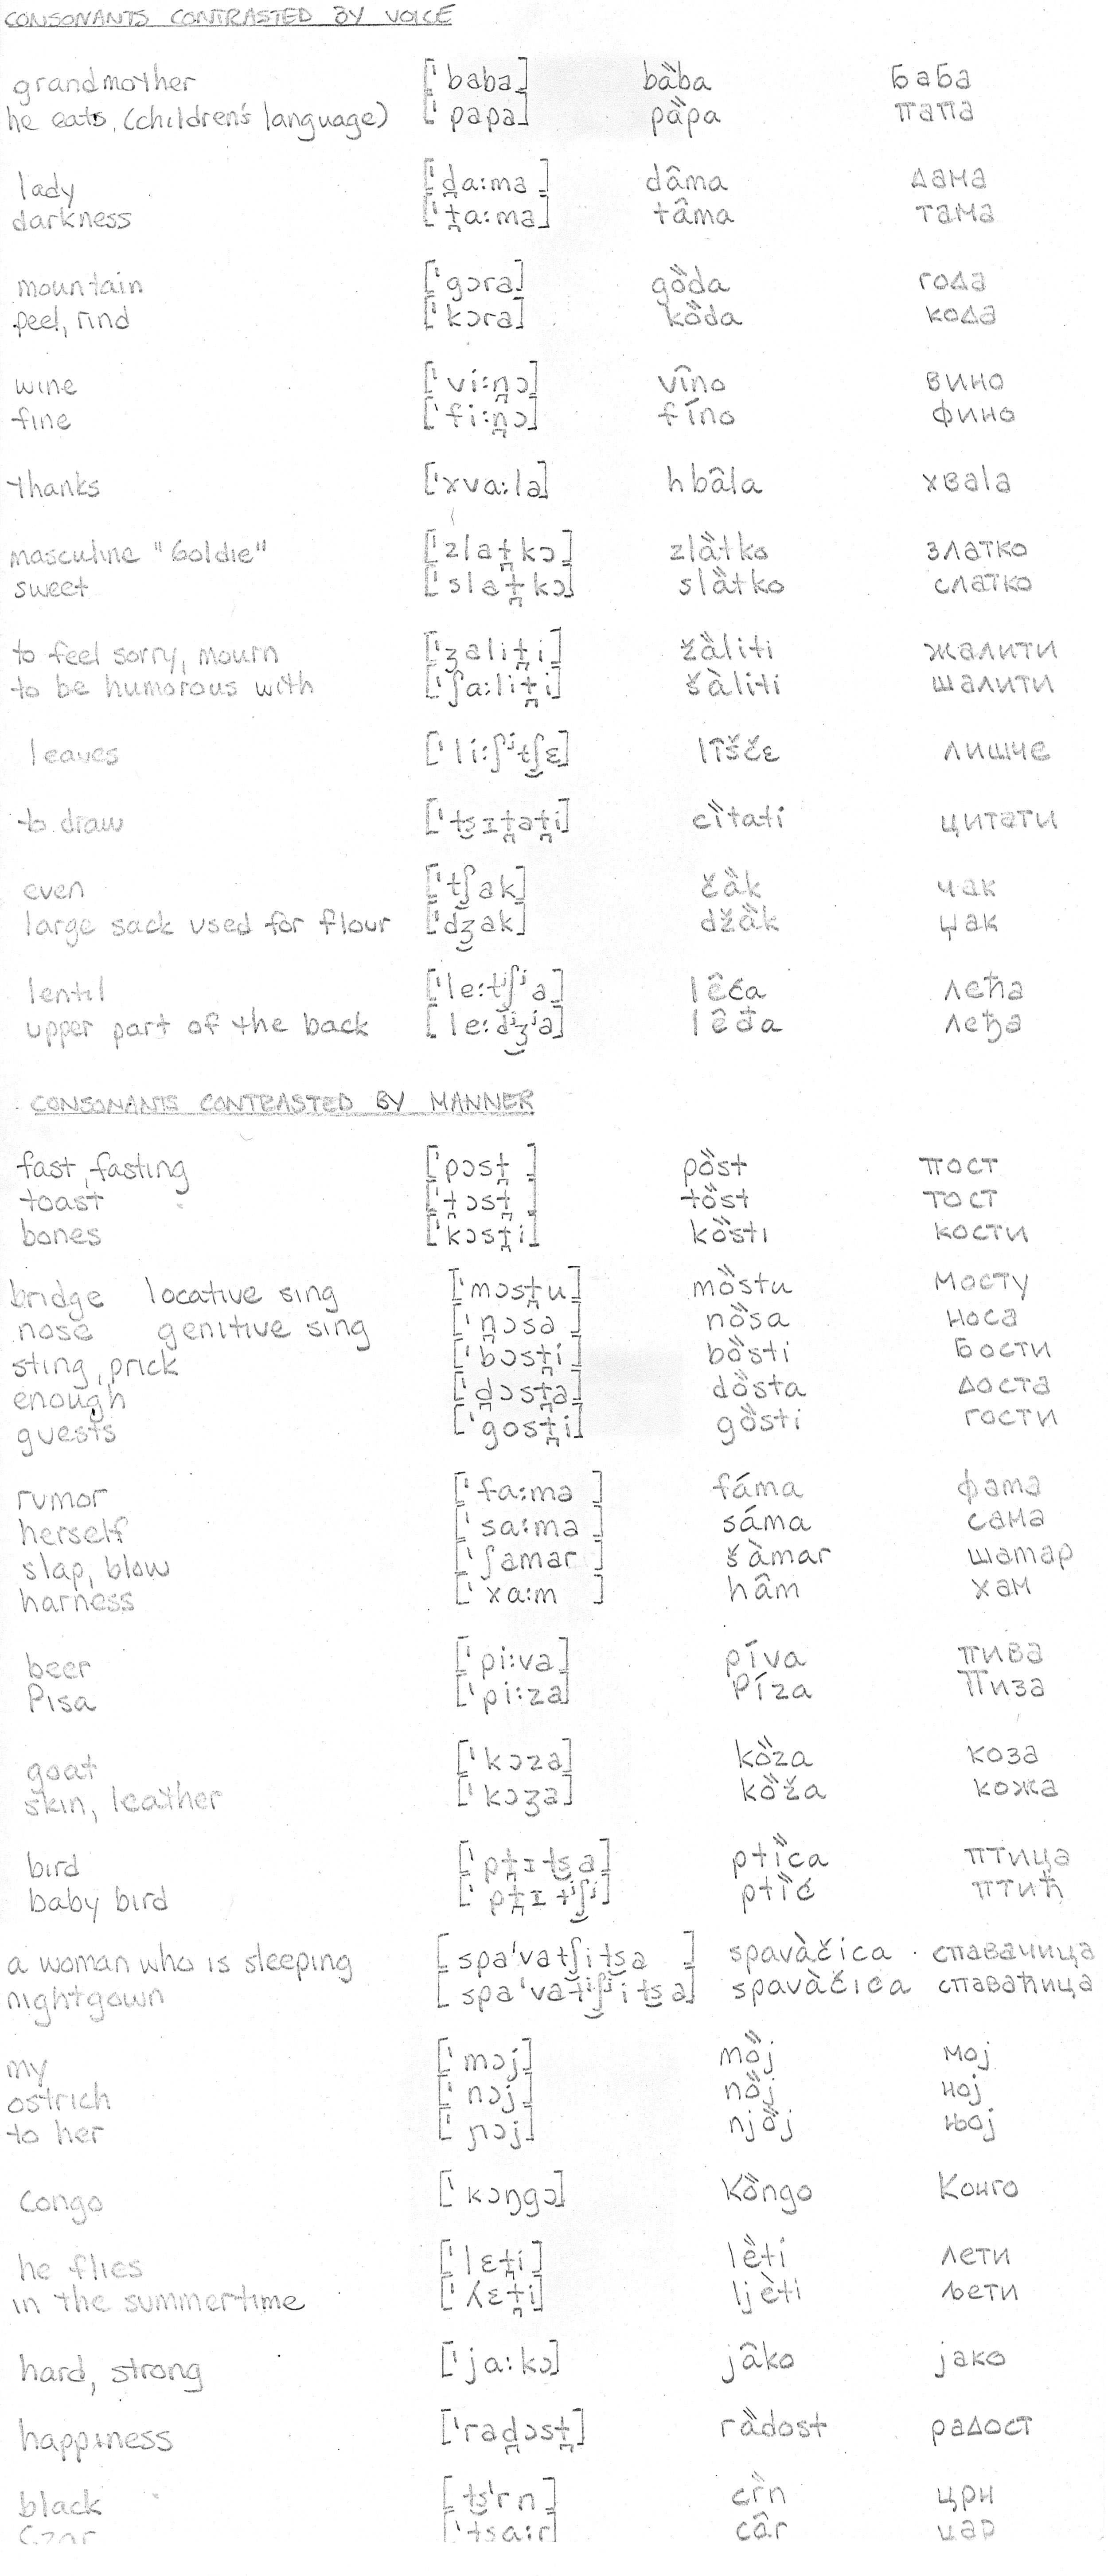 CONSONANTS CONTRASTED BY VOICE
grandmother ['baba] bȁba баба
he eats, (children's language) ['papa] pȁpa папа
lady ['d̪a:ma] dâma дама
darkness ['t̪a:ma] tâma тама
mountain ['gɔra] gȍda года
peel, rind ['kɔra] kȍda кода
wine ['vi:n̪ɔ] vîno вино
fine ['fi:n̪ɔ] fíno фино
thanks ['xva:la] hbâla хваla
masculine "Goldie" ['zlat̪kɔ] zlȁtko златко
sweet ['slat̪kɔ] slȁtko слатко
to feel sorry, mourn ['ʒalit̪i] žȁliti жалити
to be humorous with ['ʃa:lit̪i] šàliti шалити
leaves ['li:ʃʲt͜ʃɛ] lîšče лишче
to draw ['t͜sɪt̪at̪i] cȉtati цитати
even ['t͜ʃak] čȁk чак
large sack used for flour ['d͜ʒak] džȁk џак
lentil ['le:tʲ͜ʃʲa] lêća лећа
upper part of the back ['le:dʲ͜ʒʲa] lêđa леђа
CONSONANTS CONTRASTED BY MANNER
fast, fasting ['pɔst̪] pȍst пост
toast ['t̪ɔst̪] tȍst тост
bones ['kɔst̪i] kȍsti кости
bridge locative sing ['mɔst̪u] mȍstu мосту
nose genitive sing ['n̪ɔsa] nȍsa носа
sting, prick ['bɔst̪i] bȍsti бости
enough ['d̪ɔst̪a] dȍsta доста
guests ['gost̪i] gȍsti гости
rumor ['fa:ma] fáma фама
herself ['sa:ma] sáma сама
slap, blow ['ʃamar] šàmar шамар
harness ['xa:m] hâm хам
beer ['pi:va] píva пива
Pisa ['pi:za] Píza Пиза
goat ['kɔza] kȍza коза
skin, leather ['kɔʒa] kȍža кожа
bird ['pt̪ɪt͜sa] ptȉca птица
baby bird ['pt̪ɪtʲ͜ʃʲ] ptȉć птић
a woman who is sleeping [spa'vat͜ʃit͜sa] spavàčica спавачица
nightgown [spa'vatʲ͜ʃʲit͜sa] spavàćica спаваћица
my ['mɔj] mȍj мој
ostrich ['nɔj] nȍj ној
to her ['ɲɔj] njȍj њој
Congo ['kɔŋgɔ] Kȍngo Конго
he flies ['lɛt̪i] lȅti лети
in the summertime ['ʎɛt̪i] ljèti љети
hard, strong ['ja:kɔ] jâko јако
happiness ['rad̪ɔst̪] rȁdost радост
black [t͜s'rn] cȑn црн
Czar ['tsa:r] câr цар